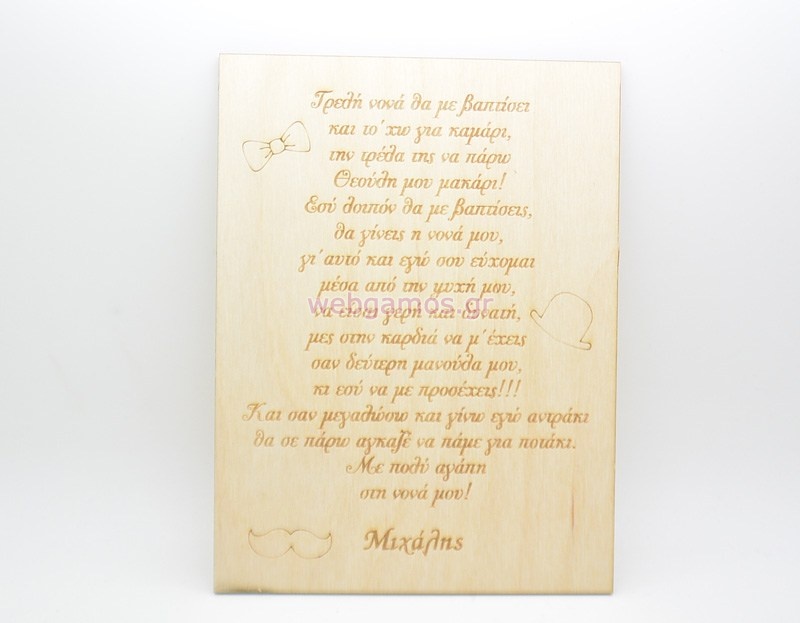 Τρελή νονά θα με βαπτίσει
και το΄χω για καμάρι,
την τρέλα της να πάρω
Θεούλη μου μακάρι!
Εσύ λοιπόν θα με βαπτίσεις,
θα γίνεις η νονά μου,
γι΄αυτό και εγώ σου εύχομαι
μέσα από την ψυχή μου,
webgamos.gr
να είσαι γερή και δυνατή,
μες στην καρδιά να μ΄έχεις
σαν δεύτερη μανούλα μου,
κι εσύ να με προσέχεις!!!
Και σαν μεγαλώσω και γίνω εγώ αντράκι
θα σε πάρω αγκαζέ να πάμε για ποτάκι.
Με πολύ αγάπη
στη νονά μου!
Μιχάλης